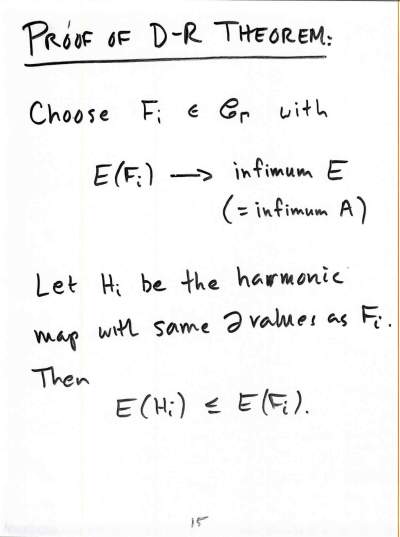 PROOF OF D-R THEOREM:
Choose Fᵢ ∈ 𝒞_Γ with
E(Fᵢ) ⟶ infimum E
(= infimum A)
Let Hᵢ be the harmonic
map with same ∂ values as Fᵢ.
Then
E(Hᵢ) ≤ E(Fᵢ).
15